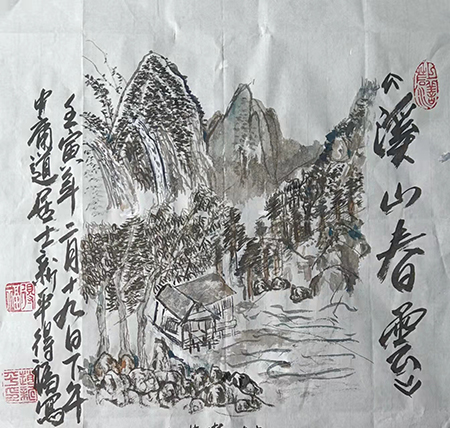 《溪山春雲》
壬寅年二月十九日下午
中庸道居士新平得福寫